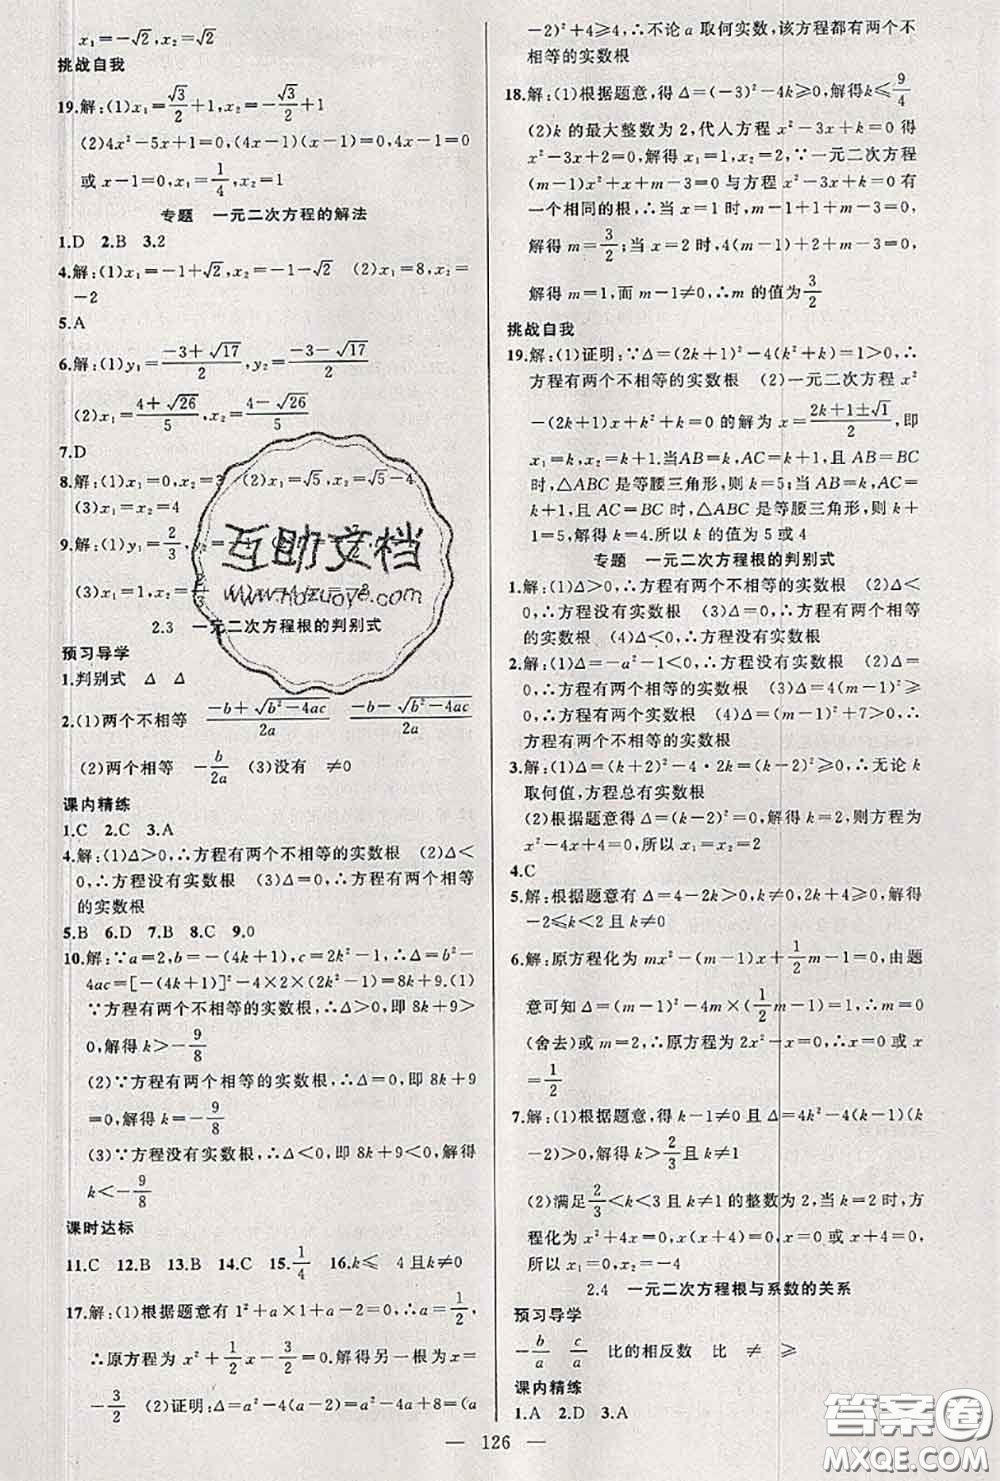 x₁=－√2,x₂=√2
挑战自我
19.解:(1)x₁=√3/2+1,x₂=－√3/2+1
(2)4x²－5x+1=0,(4x－1)(x－1)=0,4x－1=0
或x－1=0,x₁=1/4,x₂=1
专题 一元二次方程的解法
1.D 2.B 3.2
4.解:(1)x₁=－1+√2,x₂=－1－√2 (2)x₁=8,x₂=
－2
5.A
6.解:(1)y₁=(－3+√17)/2,y₂=(－3－√17)/2
(2)x₁=(4+√26)/5,x₂=(4－√26)/5
7.D
8.解:(1)x₁=0,x₂=3 (2)x₁=√5,x₂=√5－4
(3)x₁=x₂=4
9.解:(1)y₁=2/3,y₂=
(3)x₁=1,x₂=
2.3 一元二次方程根的判别式
预习导学
1.判别式 Δ Δ
2.(1)两个不相等 (－b+√(b²－4ac))/2a (－b－√(b²－4ac))/2a
(2)两个相等 －b/2a (3)没有 ≠0
课内精练
1.C 2.C 3.A
4.解:(1)Δ>0,∴方程有两个不相等的实数根 (2)Δ<
0,∴方程没有实数根 (3)Δ=0,∴方程有两个相等
的实数根
5.B 6.D 7.B 8.C 9.0
10.解:∵a=2,b=－(4k+1),c=2k²－1,∴Δ=b²－
4ac=[－(4k+1)]²－4×2×(2k²－1)=8k+9.(1)
∵方程有两个不相等的实数根,∴Δ>0,即8k+9>
0,解得k>－9/8
(2)∵方程有两个相等的实数根,∴Δ=0,即8k+9
=0,解得k=－9/8
(3)∵方程没有实数根,∴Δ<0,即8k+9<0,解得
k<－9/8
课时达标
11.C 12.B 13.B 14.C 15.1/4 16.k≤ 4且k≠0
17.解:(1)根据题意有1²+a×1+a－2=0,∴a=1/2,
∴原方程为x²+1/2x－3/2=0,解得另一根为x=
－3/2 (2)证明:Δ=a²－4(a－2)=a²－4a+8=(a
－2)²+4≥4,∴不论a取何实数,该方程都有两个不
相等的实数根
18.解:(1)根据题意,得Δ=(－3)²－4k≥0,解得k≤9/4
(2)k的最大整数为2,代人方程x²－3x+k=0得
x²－3x+2=0,解得x₁=1,x₂=2,∵一元二次方程
(m－1)x²+x+m－3=0与方程x²－3x+k=0有
一个相同的根,∴当x=1时,m－1+1+m－3=0,
解得m=3/2;当x=2时,4(m－1)+2+m－3=0,
解得m=1,而m－1≠0,∴m的值为3/2
挑战自我
19.解:(1)证明:∵Δ=(2k+1)²－4(k²+k)=1>0,∴
方程有两个不相等的实数根 (2)一元二次方程x²
－(2k+1)x+k²+k=0的解为x=(2k+1±√1)/2,即
x₁=k,x₂=k+1.当AB=k,AC=k+1,且AB=BC
时,△ABC是等腰三角形,则k=5;当AB=k,AC=
k+1,且AC=BC时,△ABC是等腰三角形,则k+
1=5,解得k=4.所以k的值为5或4
专题 一元二次方程根的判别式
1.解:(1)Δ>0,∴方程有两个不相等的实数根 (2)Δ<
0,∴方程没有实数根 (3)Δ=0,∴方程有两个相等
的实数根 (4)Δ<0,∴方程没有实数根
2.解:(1)Δ=－a²－1<0,∴方程没有实数根 (2)Δ=
0,∴方程有两个相等的实数根 (3)Δ=4(m－1)²≥
0,∴方程有两个实数根 (4)Δ=(m－1)²+7>0,∴
方程有两个不相等的实数根
3.解:(1)Δ=(k+2)²－4·2k=(k－2)²≥0,∴无论k
取何值,方程总有实数根
(2)根据题意得Δ=(k－2)²=0,解得k=2,∴方程为
x²－4x+4=0,所以x₁=x₂=2
4.C
5.解:根据题意有Δ=4－2k>0,k≠0,2k+4≥0,解得
－2≤k<2且k≠0
6.解:原方程化为mx²－(m－1)x+1/2m－1=0,由题
意可知Δ=(m－1)²－4m×(1/2m－1)=1,∴m=0
(舍去)或m=2,∴原方程为2x²－x=0,∴x=0或x
=1/2
7.解:(1)根据题意,得k－1≠0且Δ=4k²－4(k－1)(k
－2)>0,解得k>2/3且k≠1
(2)满足2/3<k<3且k≠1的整数为2,当k=2时,方
程化为x²+4x=0,x(x+4)=0,x=0或x+4=0,
所以x₁=0,x₂=－4
2.4 一元二次方程根与系数的关系
预习导学
－b/a c/a 比的相反数 比 ≠ ≥
课内精练
1.A 2.D 3.A
— 126 —
互助文档
www.Hdzuoye.com
答案圈
MXQE.COM